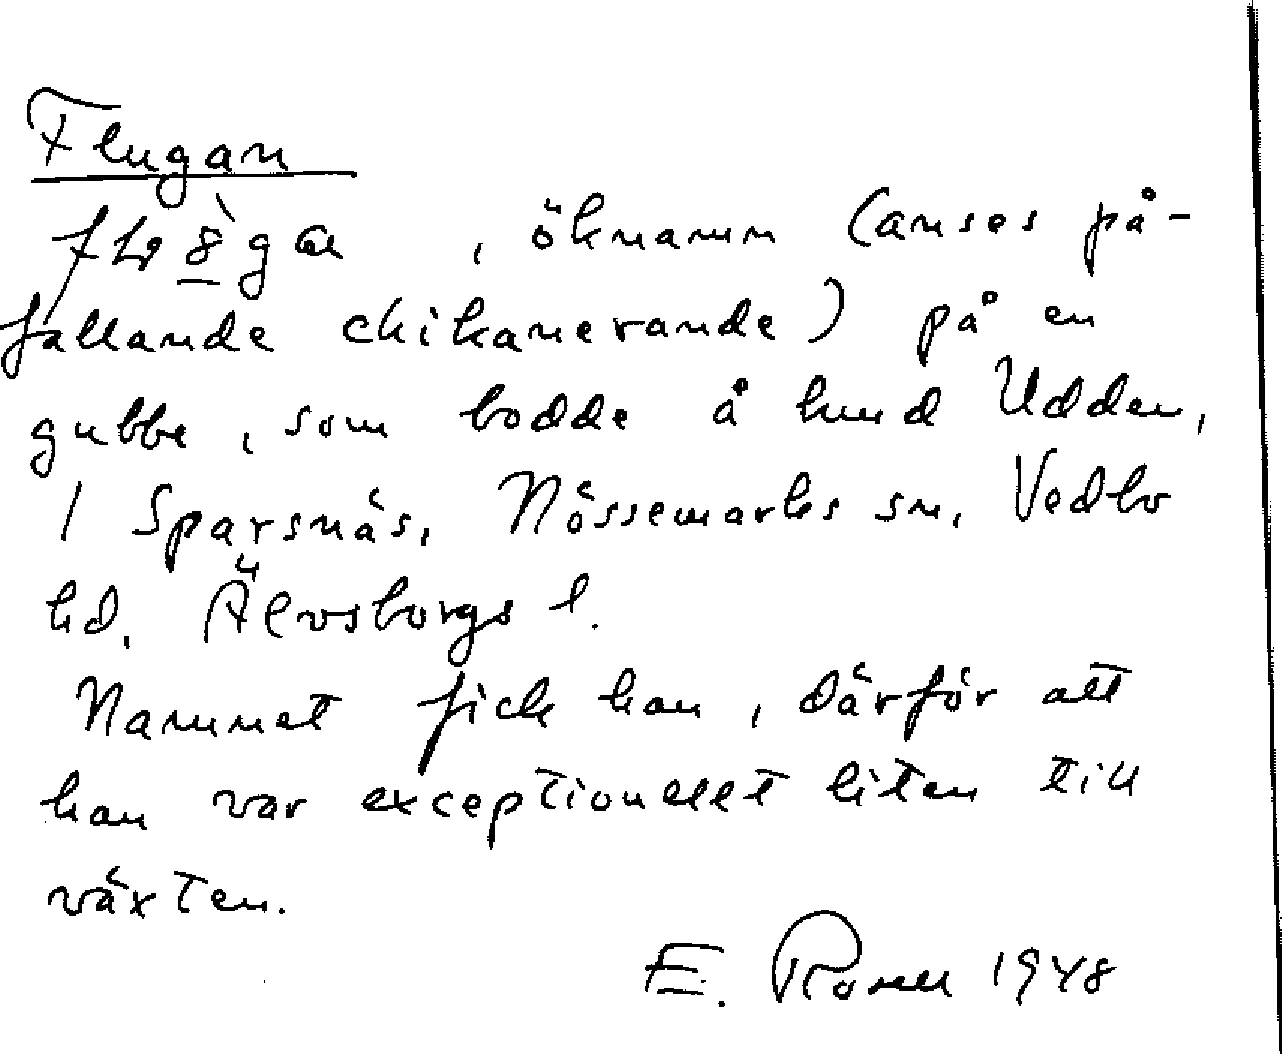 Flugan
, öknamn (anses på-
fallande chikanerande) på en
gubbe, som bodde å hmd Udden,
1 Sparsnäs, Nössemarks sn, Vedbo
hd. Älvsborgs l.
Namnet fick han, därför att
han var exceptionellt liten till
växten.
E. 1948